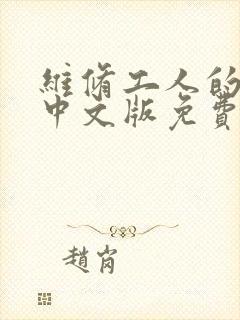 維脩工人的
中文版免費
趙肖